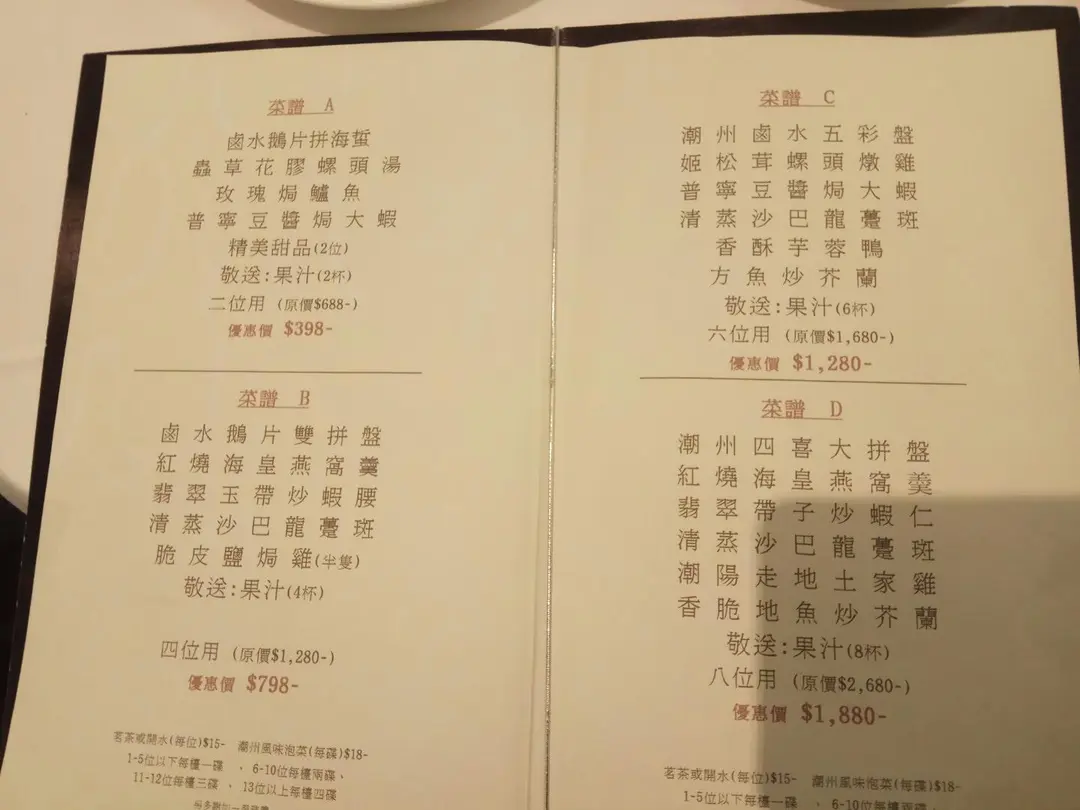 菜譜 A
鹵水鵝片拼海蜇
蟲草花膠螺頭湯
玫瑰焗鱸魚
普寧豆醬焗大蝦
精美甜品(2位)
敬送:果汁(2杯)
二位用 (原價$688-)
優惠價 $398-
菜譜 B
鹵水鵝片雙拼盤
紅燒海皇燕窩羹
翡翠玉帶炒蝦腰
清蒸沙巴龍躉斑
脆皮鹽焗雞(半隻)
敬送:果汁(4杯)
四位用 (原價$1,280-)
優惠價 $798-
茗茶或開水(每位)$15- 潮州風味泡菜(每碟)$18-
1-5位以下每檯一碟 、 6-10位每檯兩碟、
11-12位每檯三碟 、 13位以上每檯四碟
菜譜 C
潮州鹵水五彩盤
姬松茸螺頭燉雞
普寧豆醬焗大蝦
清蒸沙巴龍躉斑
香酥芋蓉鴨
方魚炒芥蘭
敬送:果汁(6杯)
六位用 (原價$1,680-)
優惠價 $1,280-
菜譜 D
潮州四喜大拼盤
紅燒海皇燕窩羹
翡翠帶子炒蝦仁
清蒸沙巴龍躉斑
潮陽走地土家雞
香脆地魚炒芥蘭
敬送:果汁(8杯)
八位用 (原價$2,680-)
優惠價 $1,880-
茗茶或開水(每位)$15- 潮州風味泡菜(每碟)$18-
1-5位以下每檯一碟 、 6-10位每檯兩碟